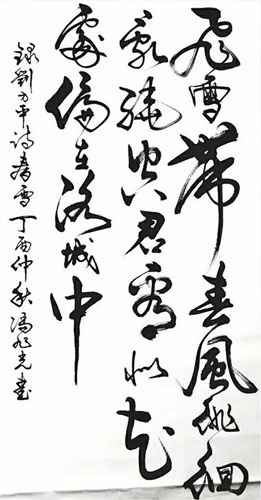 飛雪帶春風徘徊
亂繞空君看似花
處偏在洛城中
録劉方平诗春雪丁酉仲秋馮旭光書